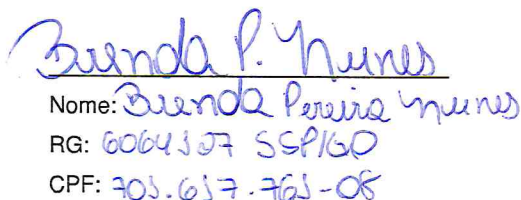 Brenda P. Nunes
Nome: Brenda Pereira Nunes
RG: 6064107 SSP/GO
CPF: 701.617.761-08